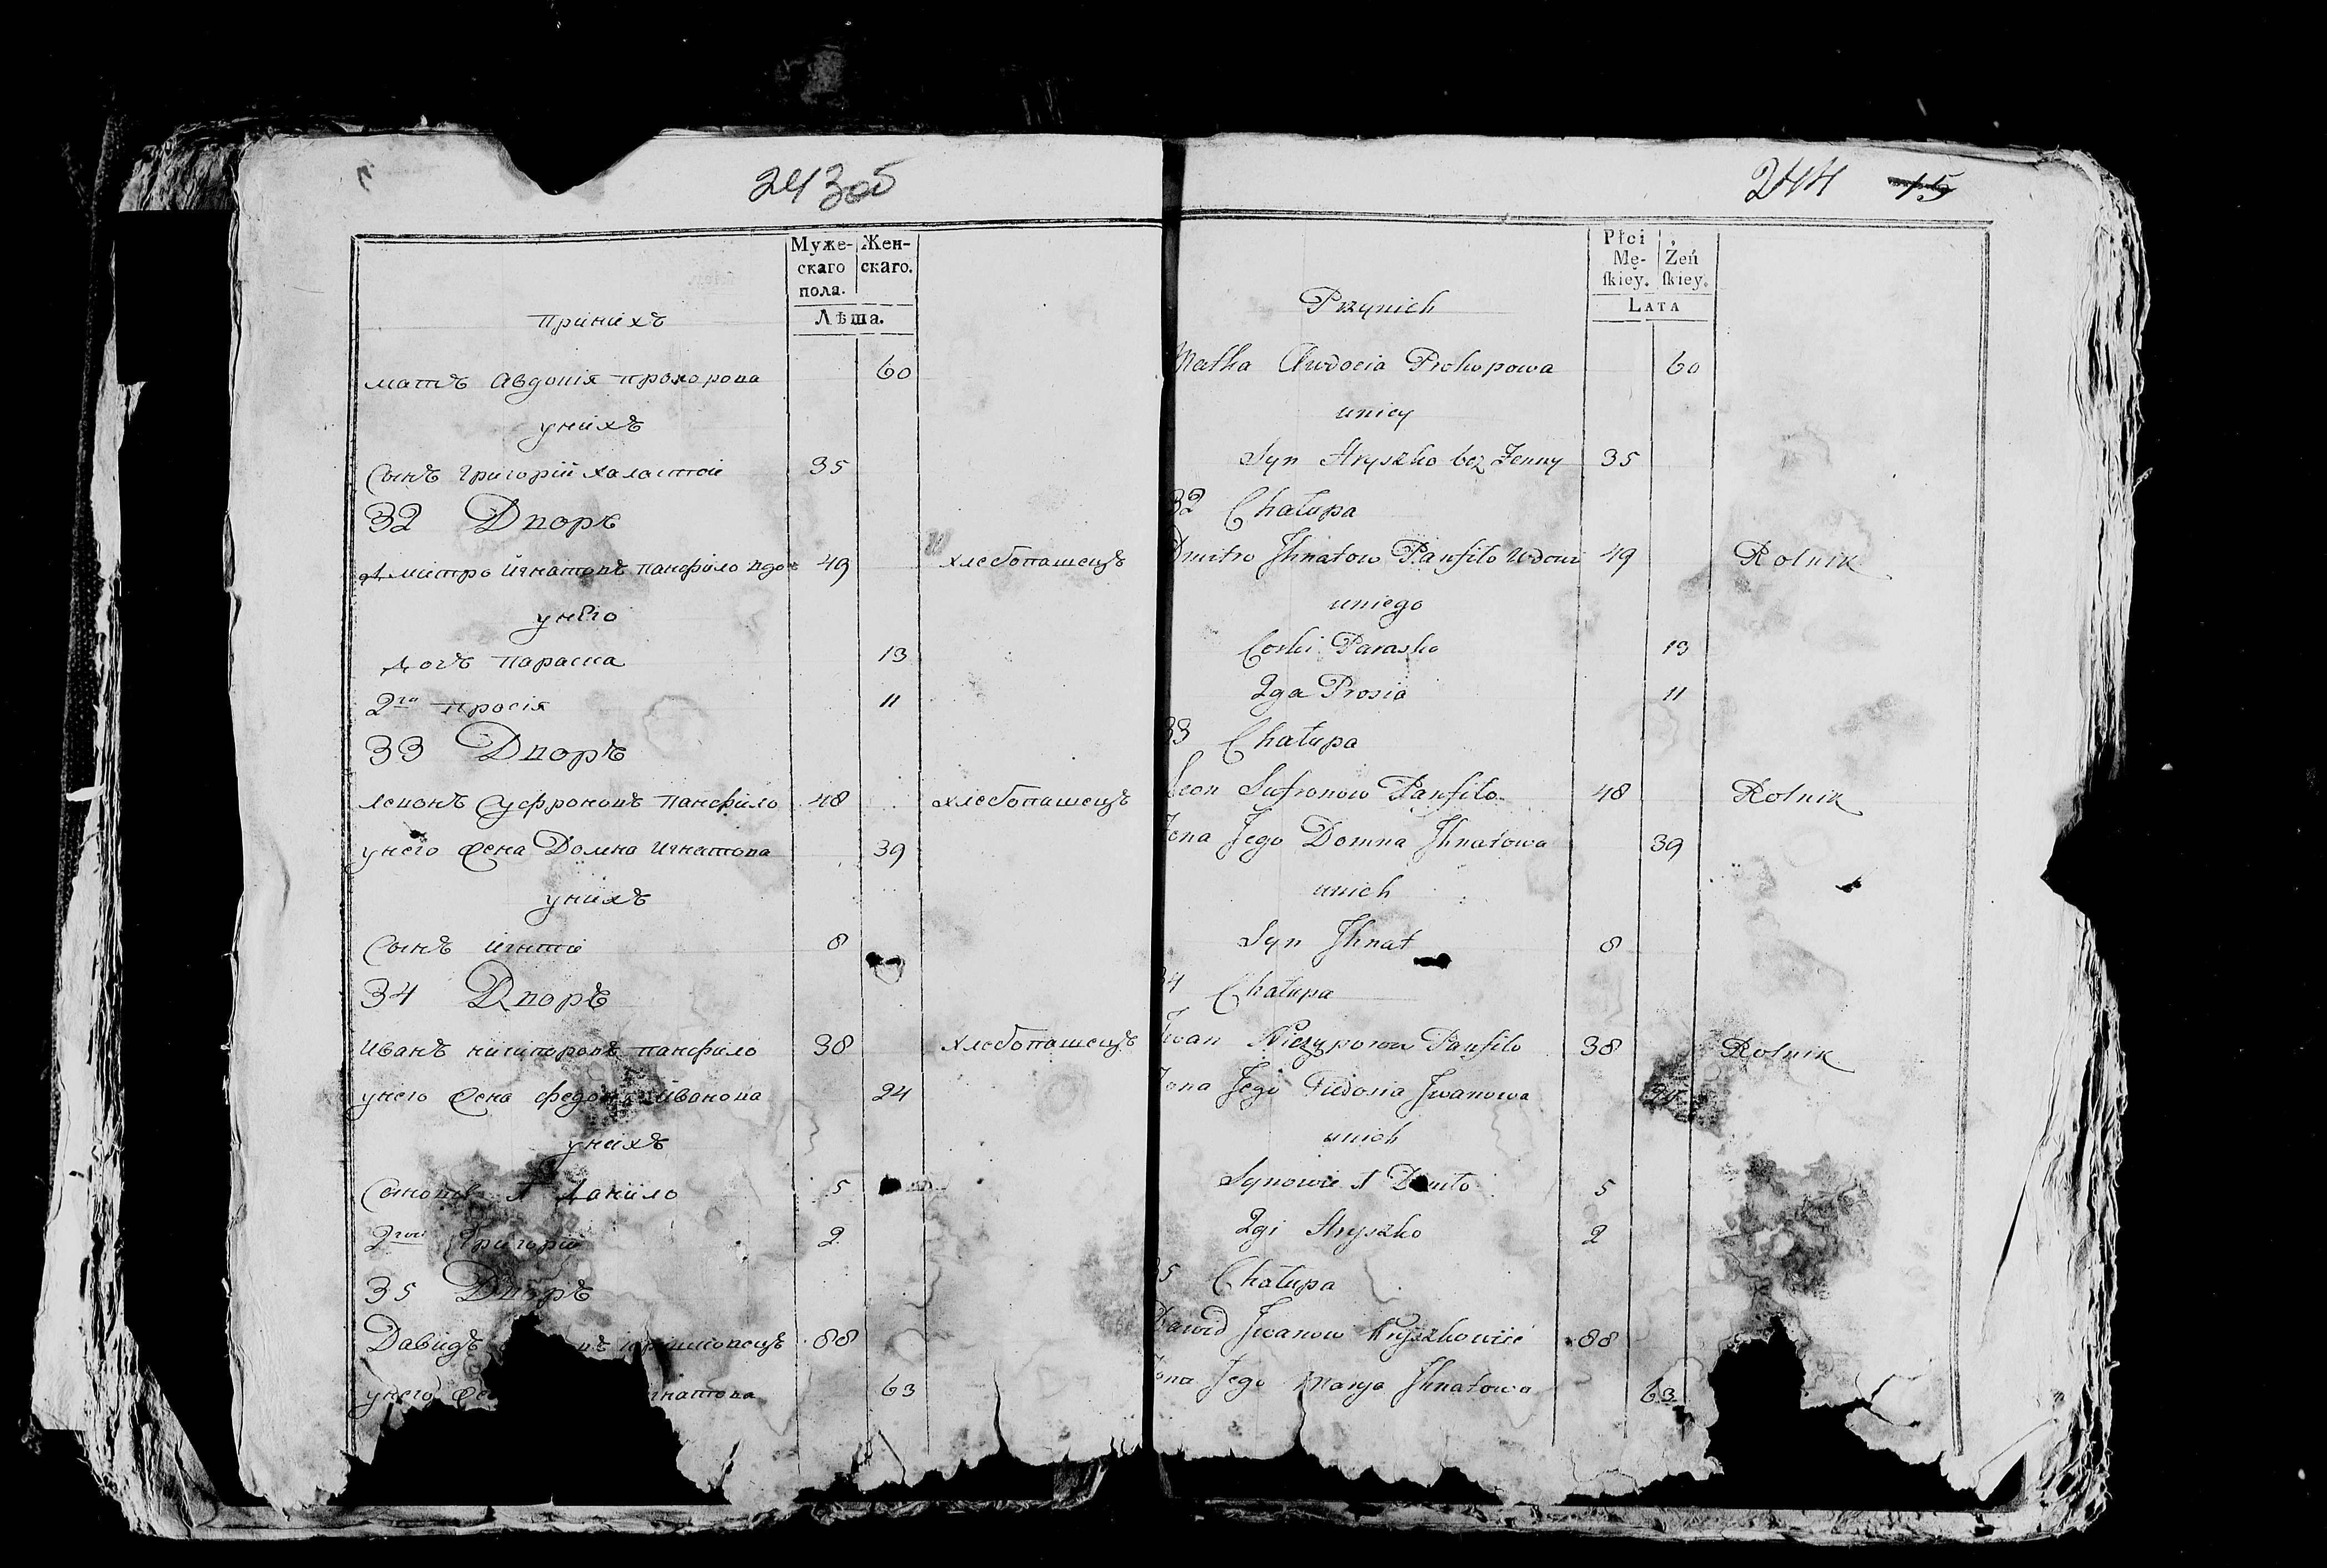 243об
Муже- Жен-
скаго скаго.
пола.
Лѣта.
принихъ
мать Авдопія прокорова 60
унихъ
Сынъ Григорій халостой 35
32 Дворъ
Дмитро Игнатовъ панфило вдов 49 хлебопашецъ
унего
дочь параска 13
2га просія 11
33 Дворъ
Левонъ Суфроновъ панфило 48 хлебопашецъ
унего жена Домна Игнатова 39
унихъ
Сынъ 8
34 Дворъ
Иванъ панфило 38 хлебопашецъ
унего жена Иванова 24
унихъ
1 Данило 5
2 Григорій 2
35 Дворъ
Давидъ 88
унего 63
244 15
Płci Żeń
Mę- ſkiey.
ſkiey.
LATA
Przynich
Matka Awdocia Prokopowa 60
unicy
Syn Hryszko bez Żenny 35
32 Chałupa
Dmitro Jhnatow Panfiło wdowi 49 Rolnik
uniego
Corki Paraska 13
2ga Prosia 11
33 Chałupa
Leon Sufronow Panfiło 48 Rolnik
Żona Jego Domna Jhnatowa 39
unich
Syn Jhnat 8
34 Chałupa
Iwan Niczyporow Panfiło 38 Rolnik
Żona Jego Fiedosia Jwanowa
unich
Synowie 1 5
2gi Hryszko 2
35 Chałupa
Dawid Jwanow 88
Żona Jego Marya Jhnatowa 63